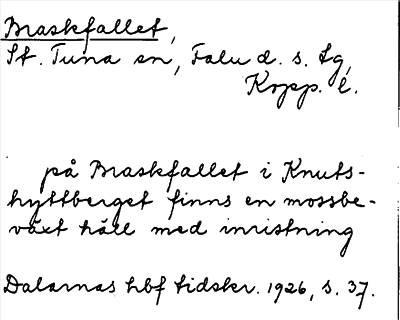 Braskfallet,
St. Tuna sn, Falu d. s. tg,
Kopp. l.
på Braskfallet i Knuts-
hyttberget finns en mossbe-
växt häll med inristning
Dalarnas hbf tidskr. 1926, s. 37.